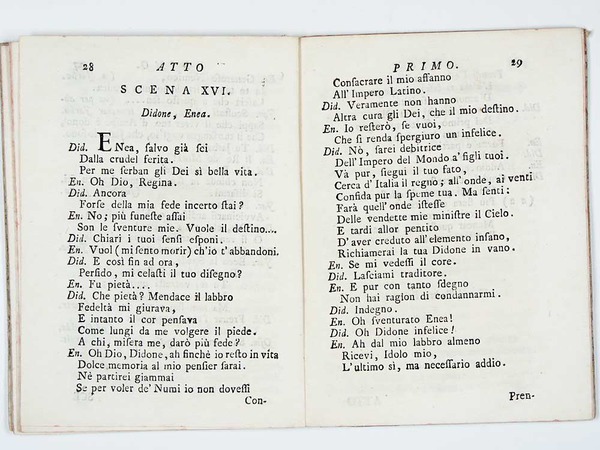 28 ATTO
SCENA XVI.
Didone, Enea.
Did. ENea, ſalvo già ſei
Dalla crudel ferita.
Per me ſerban gli Dei sì bella vita.
En. Oh Dio, Regina.
Did. Ancora
Forſe della mia fede incerto ſtai?
En. No; più funeſte aſſai
Son le sventure mie. Vuole il deſtino....
Did. Chiari i tuoi ſenſi eſponi.
En. Vuol (mi ſento morir) ch'io t'abbandoni.
Did. E così fin ad ora,
Perfido, mi celaſti il tuo diſegno?
En. Fu pietà....
Did. Che pietà? Mendace il labbro
Fedeltà mi giurava,
E intanto il cor penſava
Come lungi da me volgere il piede.
A chi, miſera me, darò più fede?
En. Oh Dio, Didone, ah finchè io reſto in vita
Dolce memoria al mio penſier ſarai.
Nè partirei giammai
Se per voler de' Numi io non doveſſi
Con-
PRIMO. 29
Conſacrare il mio affanno
All' Impero Latino.
Did. Veramente non hanno
Altra cura gli Dei, che il mio deſtino.
En. Io reſterò, ſe vuoi,
Che ſi renda ſpergiuro un infelice.
Did. Nò, ſarei debitrice
Dell' Impero del Mondo a' figli tuoi.
Và pur, ſiegui il tuo fato,
Cerca d' Italia il regno; all' onde, ai venti
Confida pur la ſpeme tua. Ma ſenti:
Farà quell' onde iſteſſe
Delle vendette mie miniſtre il Cielo.
E tardi allor pentito
D' aver creduto all' elemento inſano,
Richiamerai la tua Didone in vano.
En. Se mi vedeſſi il core.
Did. Laſciami traditore.
En. E pur con tanto ſdegno
Non hai ragion di condannarmi.
Did. Indegno.
En. Oh ſventurato Enea!
Did. Oh Didone infelice!
En. Ah dal mio labbro almeno
Ricevi, Idolo mio,
L' ultimo sì, ma neceſſario addio.
Pren-